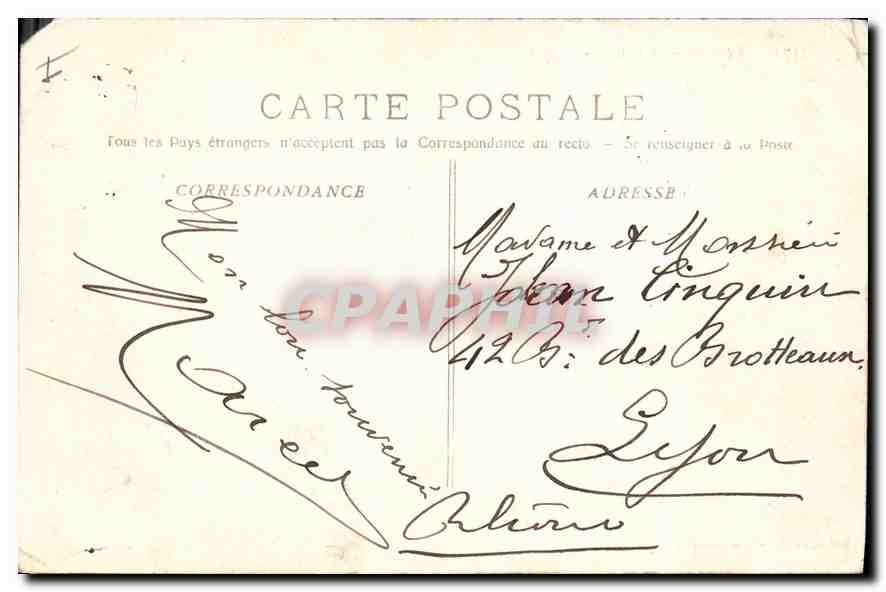 CARTE POSTALE
Tous les Pays étrangers n'acceptent pas la Correspondance au recto. - Se renseigner à la Poste
CORRESPONDANCE
ADRESSE
Mon bon souvenir
Marcel
Madame et Monsieur
Jean Cinquin
42 Bd des Brotteaux
Lyon
Rhône
CPAPHIL